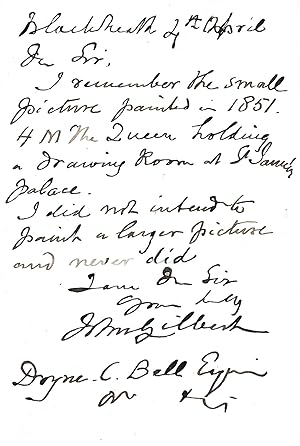 Blackheath 4th April
Dr Sir,
I remember the small
picture painted in 1851.
H M The Queen holding
a drawing Room at St James's
palace.
I did not intend to
paint a larger picture
and never did
I am Dr Sir
Yours truly
John Gilbert
Doyne C. Bell Esqre